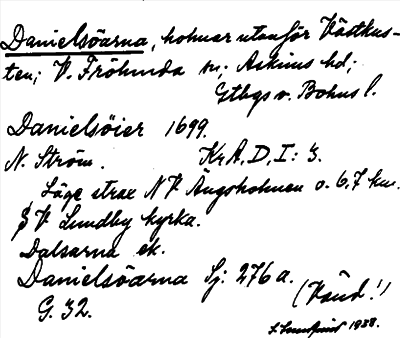 Danielsöarna, holmar utanför Västkus-
ten; V. Frölunda sn; Askims hd;
Gtbgs o. Bohus l.
Danielsöier 1699.
N. Ström. Kr A, D, I: 3.
Läge strax N V Ängsholmen o. 6.7 km.
S V Lundby kyrka.
Dalsarna ek.
Danielsöarna Sj: 276 a.
G. 32. (Vänd!)
1938.